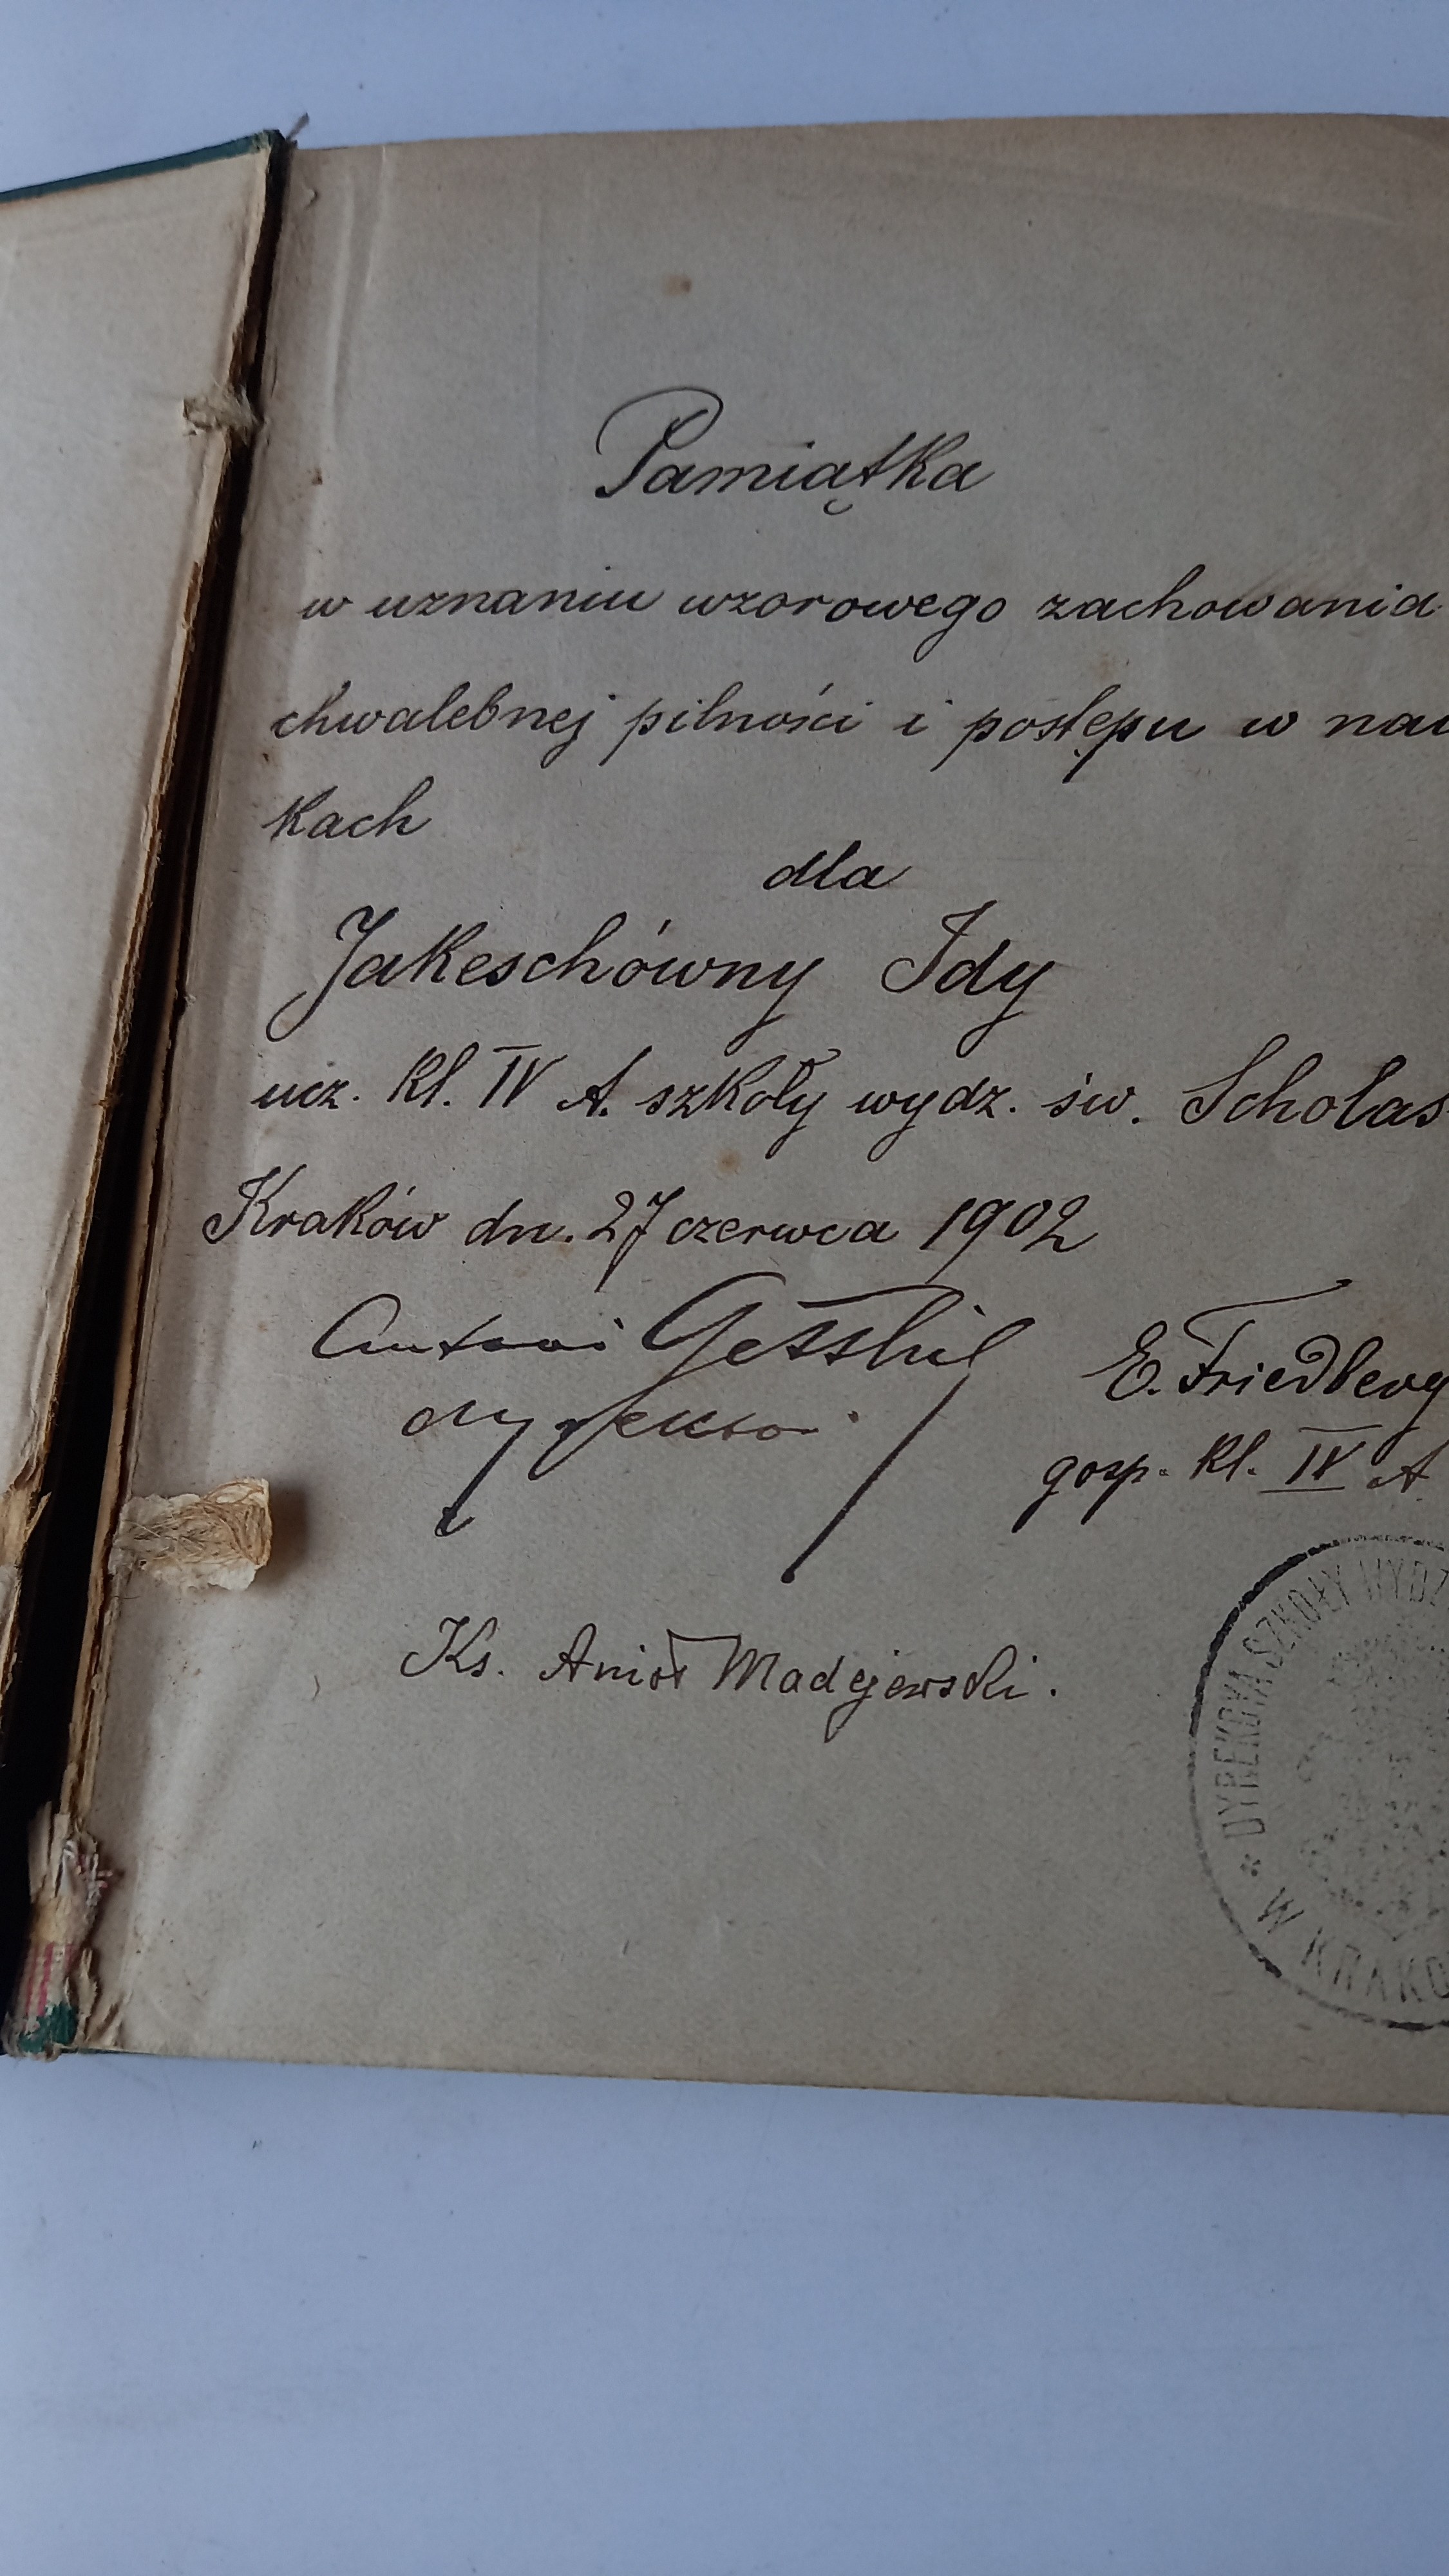 Pamiątka
w uznaniu wzorowego zachowania
chwalebnej pilności i postępu w nau
kach
dla
Jakeschówny Idy
ucz. kl. IV A. szkoły wydz. św. Scholas
Kraków dn. 27 czerwca 1902
Antoni
E. Friedberg
dyrektor
gosp. kl. IV A
Ks. Anioł Madejewski.
* DYREKCYA SZKOŁY WYDZ
W KRAKO